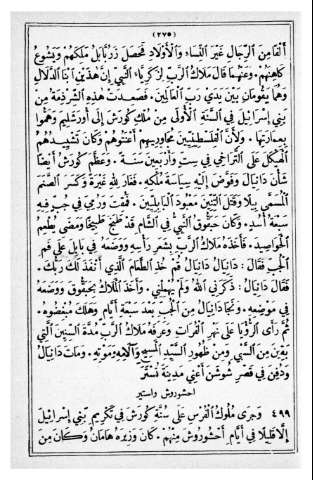 (٢٧٥)
أَلْفًا مِنَ ٱلرِّجَالِ غَيْرَ ٱلنِّسَاءِ وَٱلْأَوْلَادِ فَحَصَلَ زَرُبَّابَلُ مَلِكَهُمْ وَيَشُوعُ
كَاهِنَهُمْ. وَعَنْهُمَا قَالَ مَلَاكُ ٱلرَّبِّ لِزَكَرِيَّاءَ ٱلنَّبِيِّ إِنَّ هٰذَيْنِ ٱبْنَا ٱلدَّلَالِ
وَهُمَا يَقُومَانِ بَيْنَ يَدَيْ رَبِّ ٱلْعَالَمِينَ. فَصَعِدَتْ هٰذِهِ ٱلشِّرْذِمَةُ مِنْ
بَنِي إِسْرَائِيلَ فِي ٱلسَّنَةِ ٱلْأُولَى مِنْ مُلْكِ كُورَشَ إِلَى أُورَشَلِيمَ وَهَمُّوا
بِعِمَارَتِهَا. وَلِأَنَّ ٱلْفِلَسْطِينِيِّينَ مُجَاوِرِيهِمْ أَعْنَتُوهُمْ وَكَانَ تَشْيِيدُهُمُ
ٱلْهَيْكَلَ عَلَى ٱلتَّرَاخِي فِي سِتٍّ وَأَرْبَعِينَ سَنَةً. وَعَظَّمَ كُورَشُ أَيْضًا
شَأْنَ دَانِيَالَ وَفَوَّضَ إِلَيْهِ سِيَاسَةَ مُلْكِهِ. فَغَارَ لِلّٰهِ غَيْرَةً وَكَسَرَ ٱلصَّنَمَ
ٱلْمُسَمَّى بِيلَا وَقَتَلَ ٱلتِّنِّينَ مَعْبُودَ ٱلْبَابِلِيِّينَ. فَمُقِتَ وَرُمِيَ فِي جُبٍّ فِيهِ
سَبْعَةُ أُسْدٍ. وَكَانَ حَبَقُوقُ ٱلنَّبِيُّ فِي ٱلشَّامِ قَدْ طَبَخَ طَبِيخًا وَمَضَى يُطْعِمُ
ٱلْحَوَاصِيدَ. فَأَخَذَهُ مَلَاكُ ٱلرَّبِّ بِشَعَرِ رَأْسِهِ وَوَضَعَهُ فِي بَابِلَ عَلَى فَمِ
ٱلْجُبِّ فَقَالَ: دَانِيَالُ دَانِيَالُ قُمْ خُذِ ٱلطَّعَامَ ٱلَّذِي أَنْفَذَ لَكَ رَبُّكَ.
فَقَالَ دَانِيَالُ: ذَكَرَنِي ٱللّٰهُ وَلَمْ يُهْمِلْنِي. وَأَخَذَ ٱلْمَلَاكُ بِحَبَقُوقَ وَوَضَعَهُ
فِي مَوْضِعِهِ. وَنَجَا دَانِيَالُ مِنَ ٱلْجُبِّ بَعْدَ سَبْعَةِ أَيَّامٍ وَهَلَكَ مُبْغِضُوهُ.
ثُمَّ رَأَى ٱلرُّؤْيَا عَلَى نَهْرِ ٱلْفُرَاتِ وَعَرَّفَهُ مَلَاكُ ٱلرَّبِّ مُدَّةَ ٱلسِّنِينَ ٱلَّتِي
بَقِينَ مِنَ ٱلسَّبْيِ وَمِنْ ظُهُورِ ٱلسَّيِّدِ ٱلْمَسِيحِ وَآلَامِهِ وَمَوْتِهِ. وَمَاتَ دَانِيَالُ
وَدُفِنَ فِي قَصْرِ شُوشَنَ أَعْنِي مَدِينَةَ تُسْتَرَ
احشوروش واستير
٤٩٩ وَجَرَى مُلُوكُ ٱلْفُرْسِ عَلَى سُنَّةِ كُورَشَ فِي تَكْرِيمِ بَنِي إِسْرَائِيلَ
إِلَّا قَلِيلًا فِي أَيَّامِ أَحْشُورُوشَ مِنْهُمْ. كَانَ وَزِيرُهُ هَامَانُ وَكَانَ مِنَ